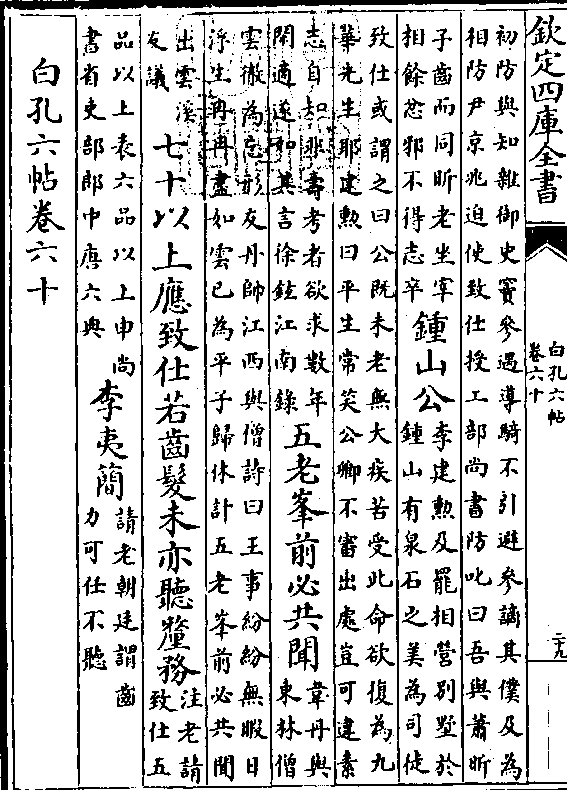 欽定四庫全書
白孔六帖
卷六十
二十九
初防與知雜御史竇參遇導騎不引避參謫其僕及為
相防尹京兆迫使致仕授工部尚書防叱曰吾與蕭昕
子齒而同昕老坐宰
相餘忿邪不得志卒
鍾山公
李建勲及罷相營別墅於
鍾山有泉石之美為司徒
致仕或謂之曰公既未老無大疾苦受此命欲復為九
華先生耶建勲曰平生常笑公卿不審出處豈可違素
志自知非壽考者欲求數年
閑適遂如其言徐鉉江南錄
五老峯前必共聞
韋丹與
東林僧
雲徹為忘形友丹帥江西與僧詩曰王事紛紛無暇日
浮生冉冉盡如雲已為平子歸休計五老峯前必共聞
出雲溪
友議
七十以上應致仕若齒髮未亦聽釐務
注老請
致仕五
品以上表六品以上申尚
書省吏部郎中唐六典
李夷簡
請老朝廷謂齒
力可仕不聽
白孔六帖卷六十